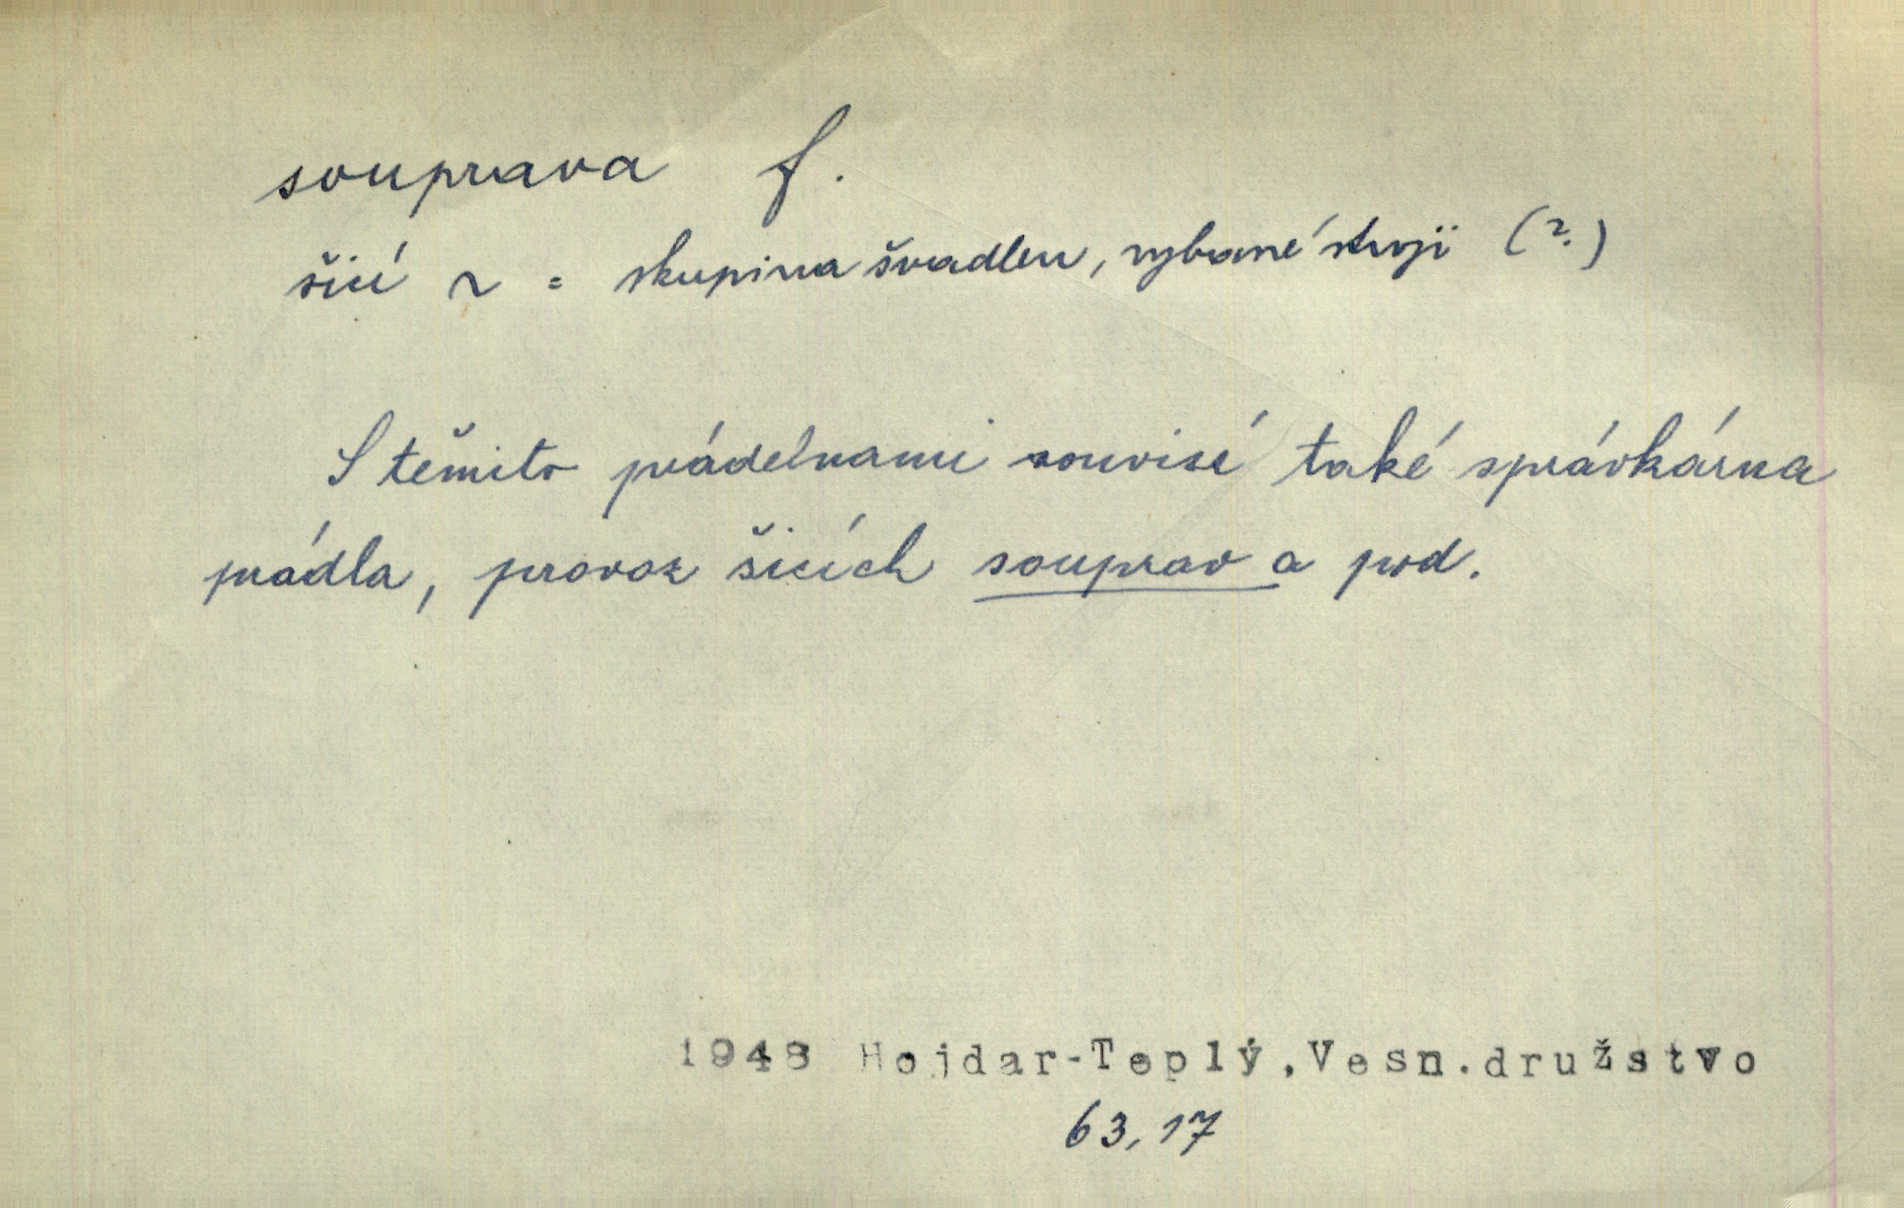 souprava f.
šicí ~ = skupina švadlen, vybrané stroji (?)
S těmito prádelnami souvisí také správkárna
prádla, provoz šicích souprav a pod.
1948 Hojdar-Teplý,Vesn.družstvo
63,17